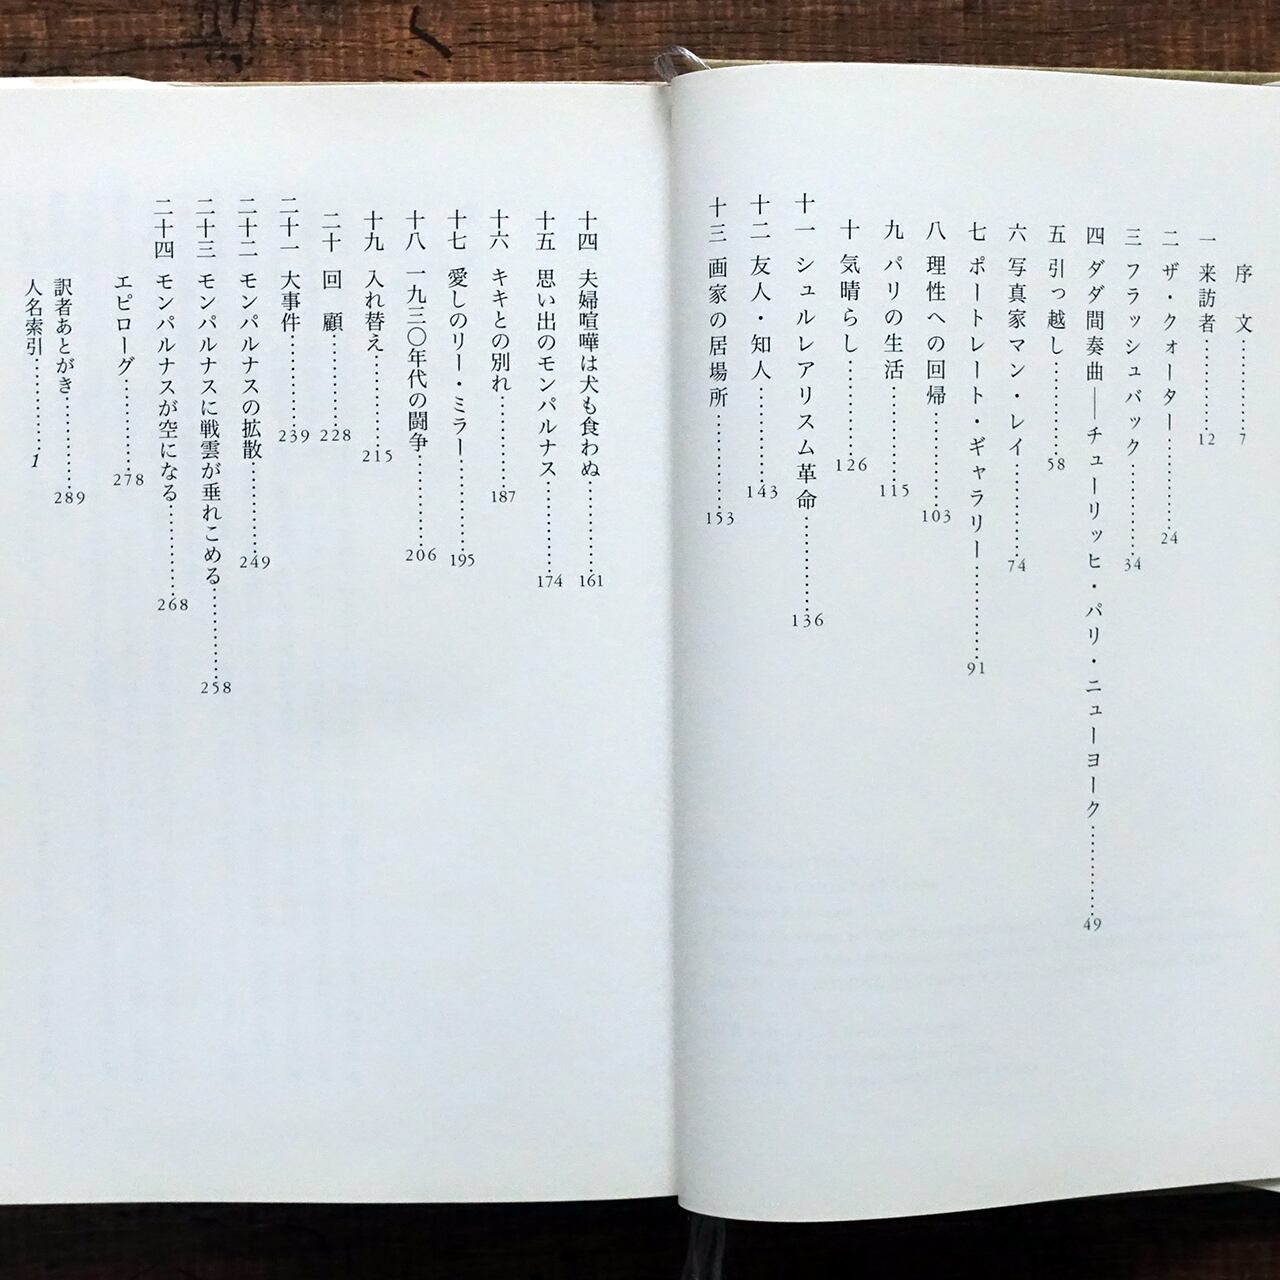 序　文…………7
一 来訪者…………12
二 ザ・クォーター…………24
三 フラッシュバック…………34
四 ダダ間奏曲――チューリッヒ・パリ・ニューヨーク…………49
五 引っ越し…………58
六 写真家マン・レイ…………74
七 ポートレート・ギャラリー…………91
八 理性への回帰…………103
九 パリの生活…………115
十 気晴らし…………126
十一 シュルレアリスム革命…………136
十二 友人・知人…………143
十三 画家の居場所…………153
十四 夫婦喧嘩は犬も食わぬ…………161
十五 思い出のモンパルナス…………174
十六 キキとの別れ…………187
十七 愛しのリー・ミラー…………195
十八 一九三〇年代の闘争…………206
十九 入れ替え…………215
二十 回　顧…………228
二十一 大事件…………239
二十二 モンパルナスの拡散…………249
二十三 モンパルナスに戦雲が垂れこめる…………258
二十四 モンパルナスが空になる…………268
エピローグ…………278
訳者あとがき…………289
人名索引…………1